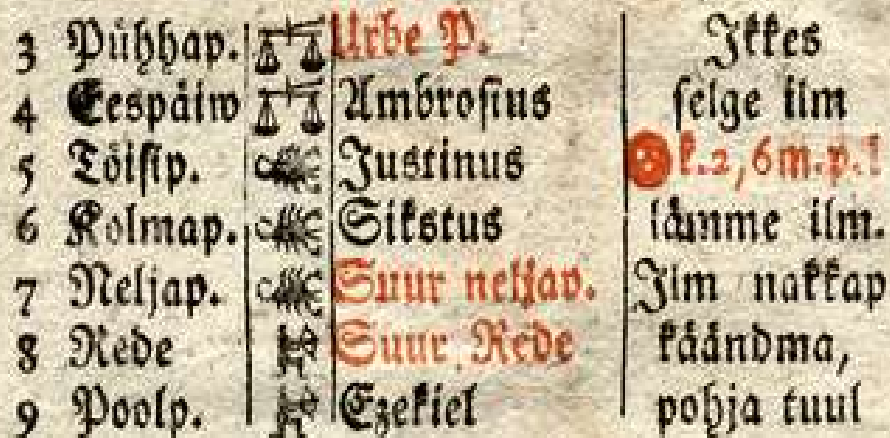 3 Pühhap. Urbe P. Ikkes
4 Eespäiw Ambrosius selge ilm
5 Töisip. Justinus k.2, 6m.p.l
6 Kolmap. Sikstus lämme ilm.
7 Neljap. Suur neljap. Ilm nakkap
8 Rede Suur Rede käändma,
9 Poolp. Ezekiel pohja tuul